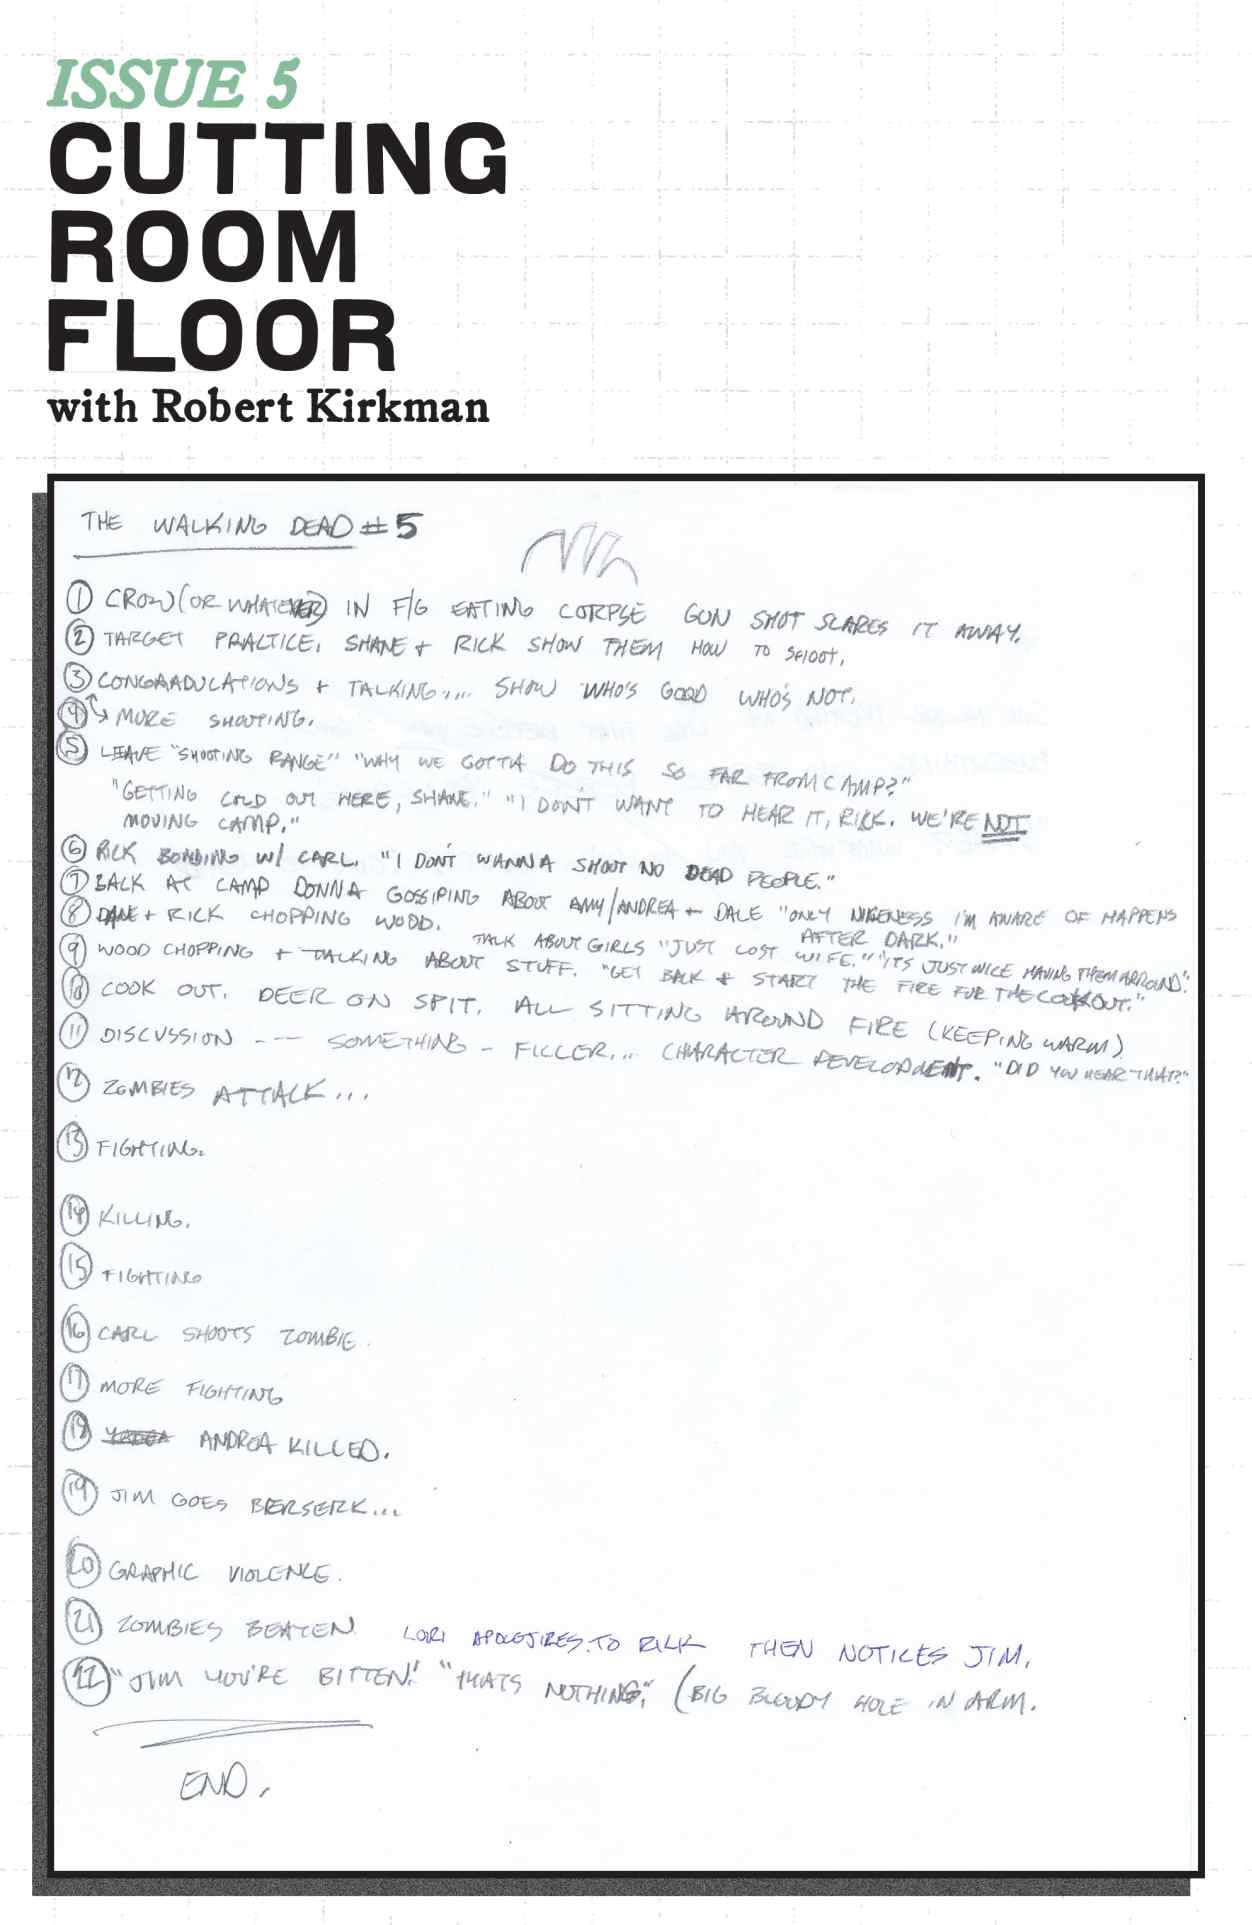 ISSUE 5
CUTTING
ROOM
FLOOR
with Robert Kirkman
THE WALKING DEAD #5
1 CROW (OR WHATEVER) IN F/G EATING CORPSE GUN SHOT SCARES IT AWAY.
2 TARGET PRACTICE. SHANE + RICK SHOW THEM HOW TO SHOOT.
3 CONGRADULATIONS + TALKING.... SHOW WHO'S GOOD WHO'S NOT.
4 MORE SHOOTING.
5 LEAVE "SHOOTING RANGE" "WHY WE GOTTA DO THIS SO FAR FROM CAMP?"
"GETTING COLD OUT HERE, SHANE." "I DON'T WANT TO HEAR IT, RICK. WE'RE NOT
MOVING CAMP."
6 RICK BONDING W/ CARL. "I DON'T WANNA SHOOT NO DEAD PEOPLE."
7 BACK AT CAMP DONNA GOSSIPING ABOUT AMY/ANDREA + DALE "ONLY NICENESS I'M AWARE OF HAPPENS
AFTER DARK."
8 + RICK CHOPPING WOOD.
TALK ABOUT GIRLS "JUST LOST WIFE." "ITS JUST NICE HAVING THEM ARROUND."
9 WOOD CHOPPING + TALKING ABOUT STUFF. "GET BACK & START THE FIRE FOR THE COOKOUT."
10 COOK OUT. DEER ON SPIT. ALL SITTING AROUND FIRE (KEEPING WARM)
11 DISCUSSION --- SOMETHING - FILLER... CHARACTER DEVELOPMENT. "DID YOU HEAR THAT?"
12 ZOMBIES ATTACK...
13 FIGHTING.
14 KILLING.
15 FIGHTING
16 CARL SHOOTS ZOMBIE.
17 MORE FIGHTING
18 ANDREA KILLED.
19 JIM GOES BERSERK...
20 GRAPHIC VIOLENCE.
21 ZOMBIES BEATEN. LORI APOLOJIZES TO RICK THEN NOTICES JIM.
22 "JIM YOU'RE BITTEN!" "THATS NOTHING." (BIG BLOODY HOLE IN ARM.
END.